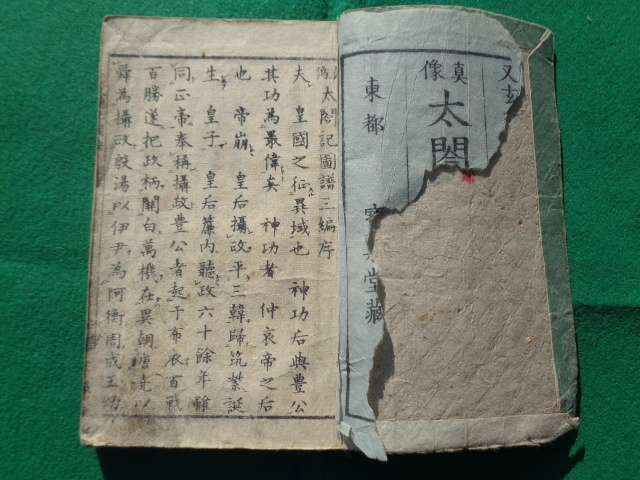 又玄
真像
太閤
東都
堂藏
太閤記圖譜三編序
夫皇國之征異域也神功后與豊公
其功為最偉矣神功者仲哀帝之后
也帝崩皇后攝政平三韓歸筑紫誕
生皇子皇后簾内聽政六十餘年雖
同正帝奉稱攝政豊公者起于布衣百戰
百勝遂把政柄關白萬機在異朝唐堯以
舜為攝政殷湯以伊尹為阿衡周成王幼